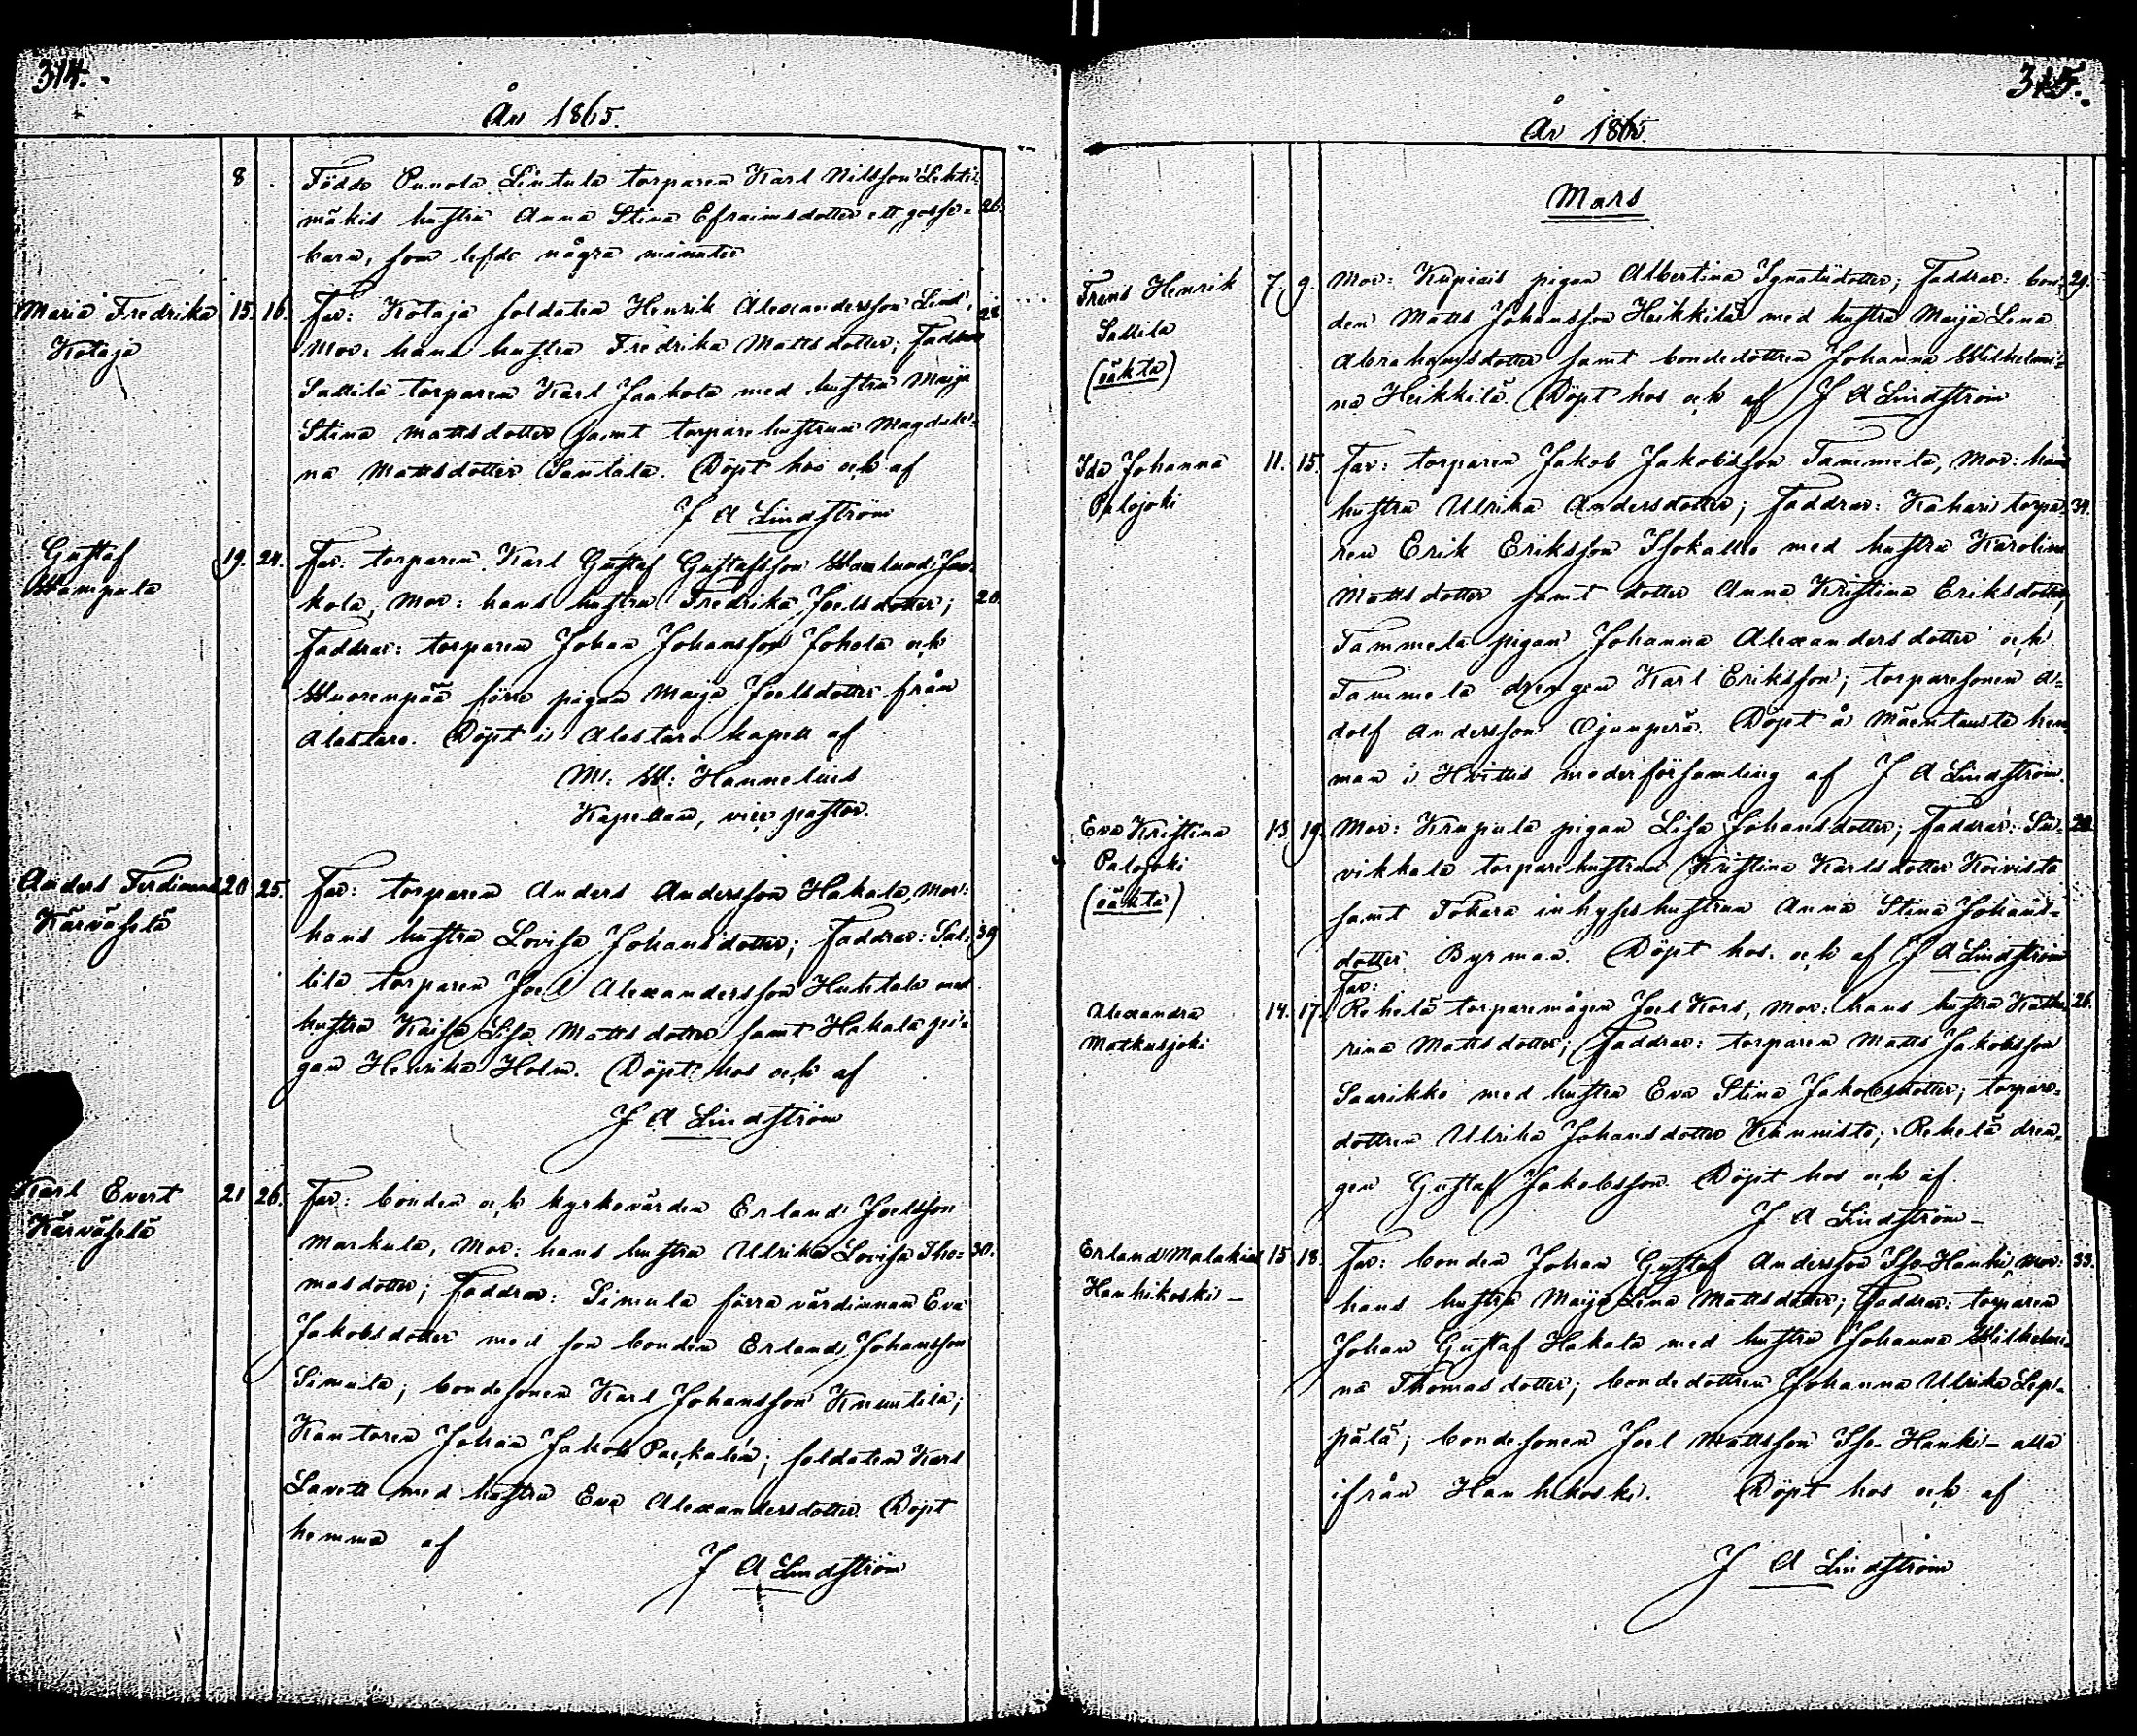 314.
År 1865.
8 Födde Punola Lintula torparen Karl Nilsson Lehti-
mäkis hustru Anna Stina Efraimsdotter ett gosse- 26.
barn, som lefde några minuter
Maria Fredrika 15. 16. Far: Kotaja soldaten Henrik Alexandersson Lind, 28.
Kotaja Mor: hans hustru Fredrika Mattsdotter; Faddrar
Sallila torparen Karl Jaakola med hustru Maija
Stina Mattsdotter samt torparehustrun Magdale-
na Mattsdotter Santala. Döpt hos och af
J A Lindström
Gustaf 19. 24. Far: torparen Karl Gustaf Gustafsson
Wampula kola, Mor: hans hustru Fredrika Joelsdotter; 20.
Faddrar: torparen Johan Johansson Johola och
Wuorenpää förre pigan Maija Joelsdotter från
Alastaro. Döpt i Alastaro kapell af
M: W: Hannelius
Kapellan, vice pastor.
Anders Ferdinand 20 25. Far: torparen Anders Andersson Hakala, Mor:
Kärväselä hans hustru Lovisa Johansdotter; Faddrar: Sal- 39
lila torparen Joel Alexandersson Huhtala med
hustru Kaisa Lisa Mattsdotter samt Hakala pi-
gan Henrika Holm. Döpt hos och af
J A Lindström
Karl Evert 21 26. Far: bonden och kyrkovärden Erland Joelsson
Kärväselä Markula, Mor: hans hustru Ulrika Lovisa Tho- 30.
masdotter; Faddrar: Simula förra värdinnan Eva
Jakobsdotter med son bonden Erland Johansson
Simula; bondesonen Karl Johansson Knuutila;
Kantoren Johan Jakob Packalén; soldaten Karl
Lavett med hustru Eva Alexandersdotter. Döpt
hemma af
J A Lindström
315.
År 1865.
Mars
Frans Henrik 7. 9. Mor: Kupiais pigan Albertina Ignatiidotter; Faddrar: bon- 29.
Sallila den Matts Johansson Heikkilä med hustru Maija Lena
(oäkta) Abrahamsdotter samt bondedottren Johanna Wilhelmi-
na Heikkilä. Döpt hos och af J A Lindström
Ida Johanna 11. 15. Far: torparen Jakob Jakobsson Tammela, Mor: hans
Palojoki hustru Ulrika Andersdotter; Faddrar: Kahari torpa- 34.
ren Erik Eriksson Isokallio med hustru Karolina
Mattsdotter samt dotter Anna Kristina Eriksdotter,
Tammela pigan Johanna Alexandersdotter och
Tammela drengen Karl Eriksson; torparesonen A-
dolf Andersson Ojanperä. Döpt å Mäentausta hem-
man i Hvittis moderförsamling af J A Lindström.
Eva Kristina 13. 19. Mor: Krapula pigan Lisa Johansdotter; Faddrar: Sa-
Palojoki vikkala torparehustrun Kristina Karlsdotter Koivisto
(oäkta) samt Tokara inhyseshustrun Anna Stina Johans-
dotter Byrman. Döpt hos och af J A Lindström
Far:
Alexandra 14. 17. Rekelä torparemågen Joel Kors, Mor: hans hustru Katha- 26.
Matkusjoki rina Mattsdotter; Faddrar: torparen Matts Jakobsson
Saarikko med hustru Eva Stina Jakobsdotter; torpare-
dottren Ulrika Johansdotter Kännistö; Rekelä dren-
gen Gustaf Jakobsson. Döpt hos och af
J A Lindström
Erland Malakias 15 18. Far: bonden Johan Gustaf Andersson Iso-Hanki, Mor: 33.
Hanhikoski hans hustru Maija Lena Mattsdotter; Faddrar: torparen
Johan Gustaf Hakala med hustru Johanna Wilhelmi-
na Thomasdotter; bondedottren Johanna Ulrika Lep-
pälä; bondesonen Joel Mattsson Iso-Hanki – alla
ifrån Hanhikoski. Döpt hos och af
J A Lindström